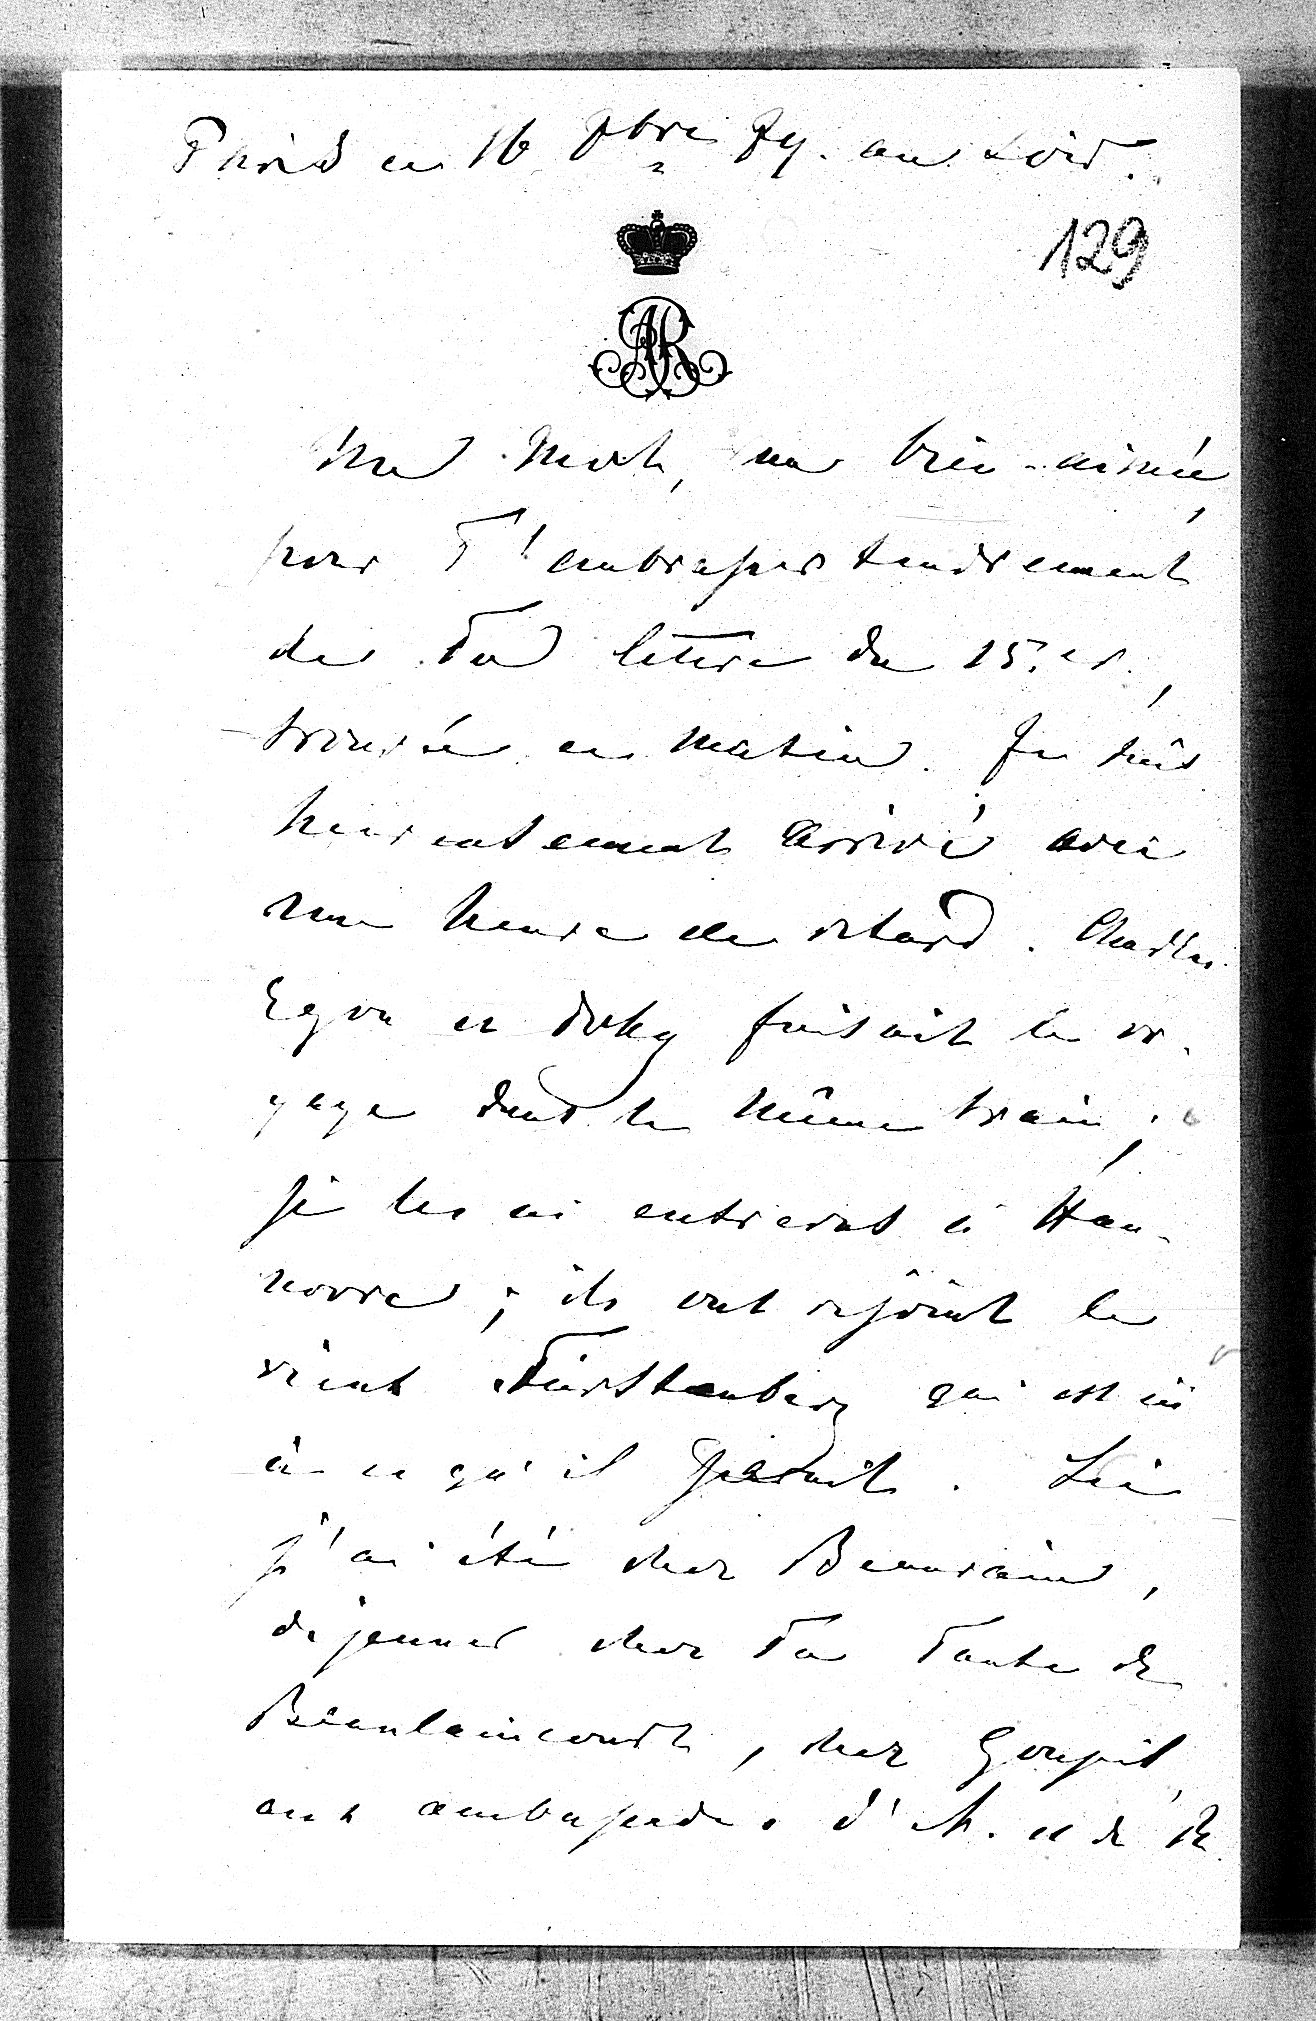 Paris ce 16 9bre 79. au soir.
129
AR
Un mot, ma bien-aimée,
pour T'embrasser tendrement
de Ta lettre du 15. cr.,
trouvée ce matin. Je suis
heureusement arrivé avec
une heure de retard. Charles
Egon et Dolzy faisait le vo-
yage dans le même train;
je les ai entrevus à Han-
novre; ils ont rejoint le
vieux Fürstenberg qui est ici
à ce qu'il parait.
j'ai été chez Beaurain,
dejeuner chez Ta Tante de
Beaulaincourt, chez Goupil,
aux ambassades d'A. et de R.